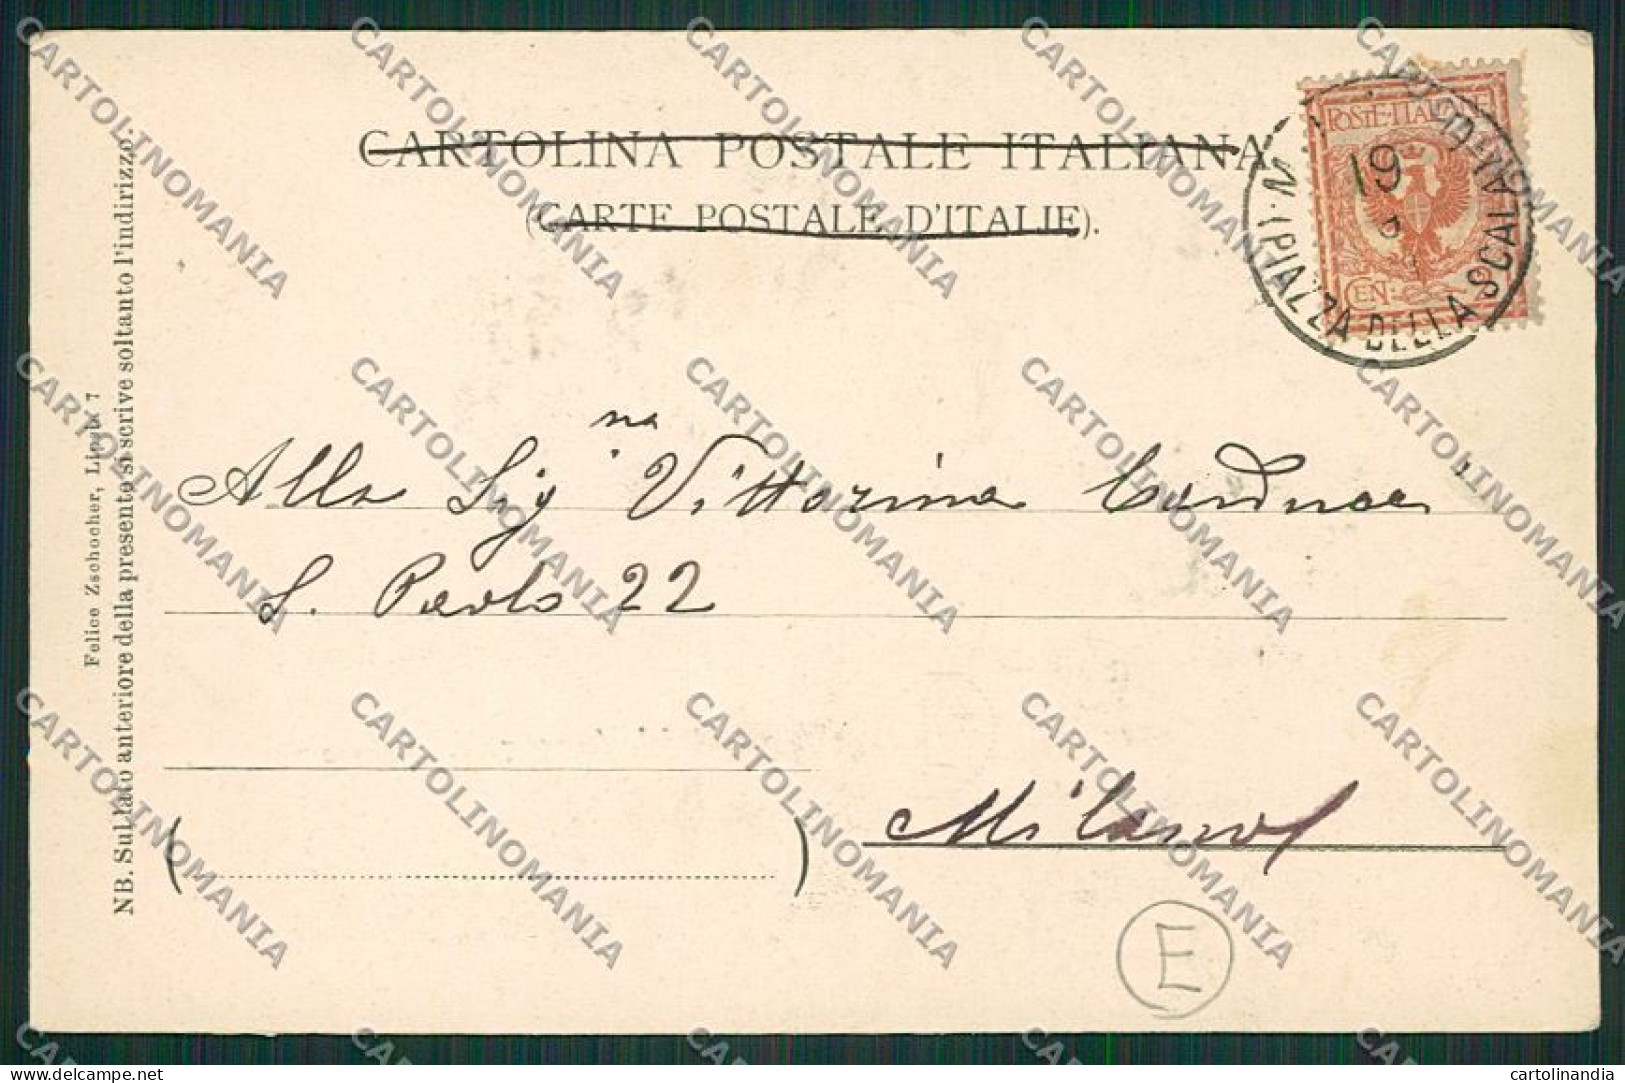 CARTOLINA POSTALE ITALIANA
(CARTE POSTALE D'ITALIE).
POSTE·ITALIANE
CEN:
19
PIAZZA DELLA SCALA
NB. Sul lato anteriore della presente si scrive soltanto l'indirizzo.
Felice Zschocher, Lipsia 7
Alla Sig.na Vittorina
S. Paolo 22
Milano
E
CARTOLINOMANIA
delcampe.net
cartolinandia